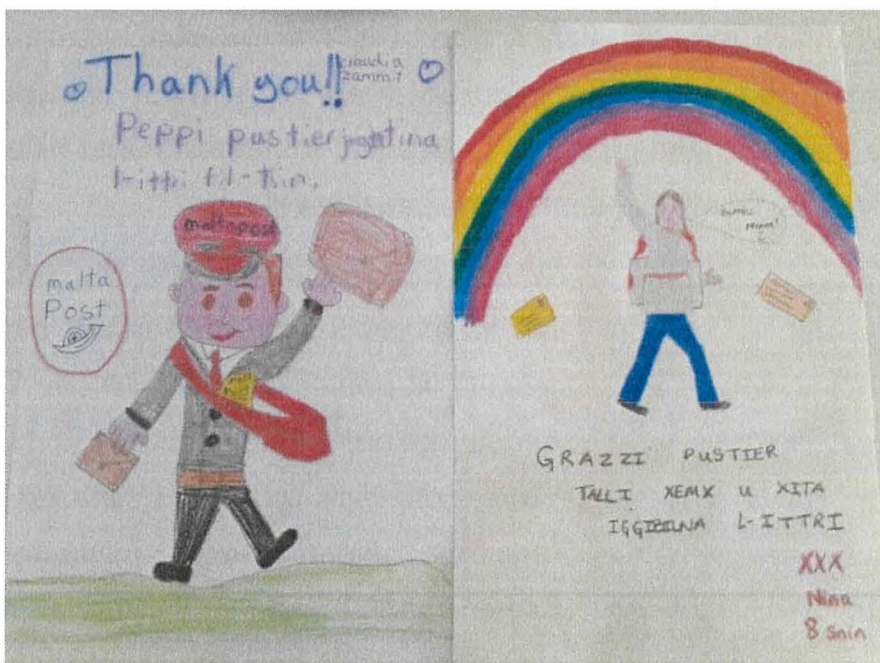 Thank you!!
claudia
zammit
Peppi pustier jogħtina
l-ittri fil-ħin.
maltapost
malta
Post
GRAZZI PUSTIER
TALLI XEMX U XITA
IĠĠIBILNA L-ITTRI
XXX
Nina
8 snin